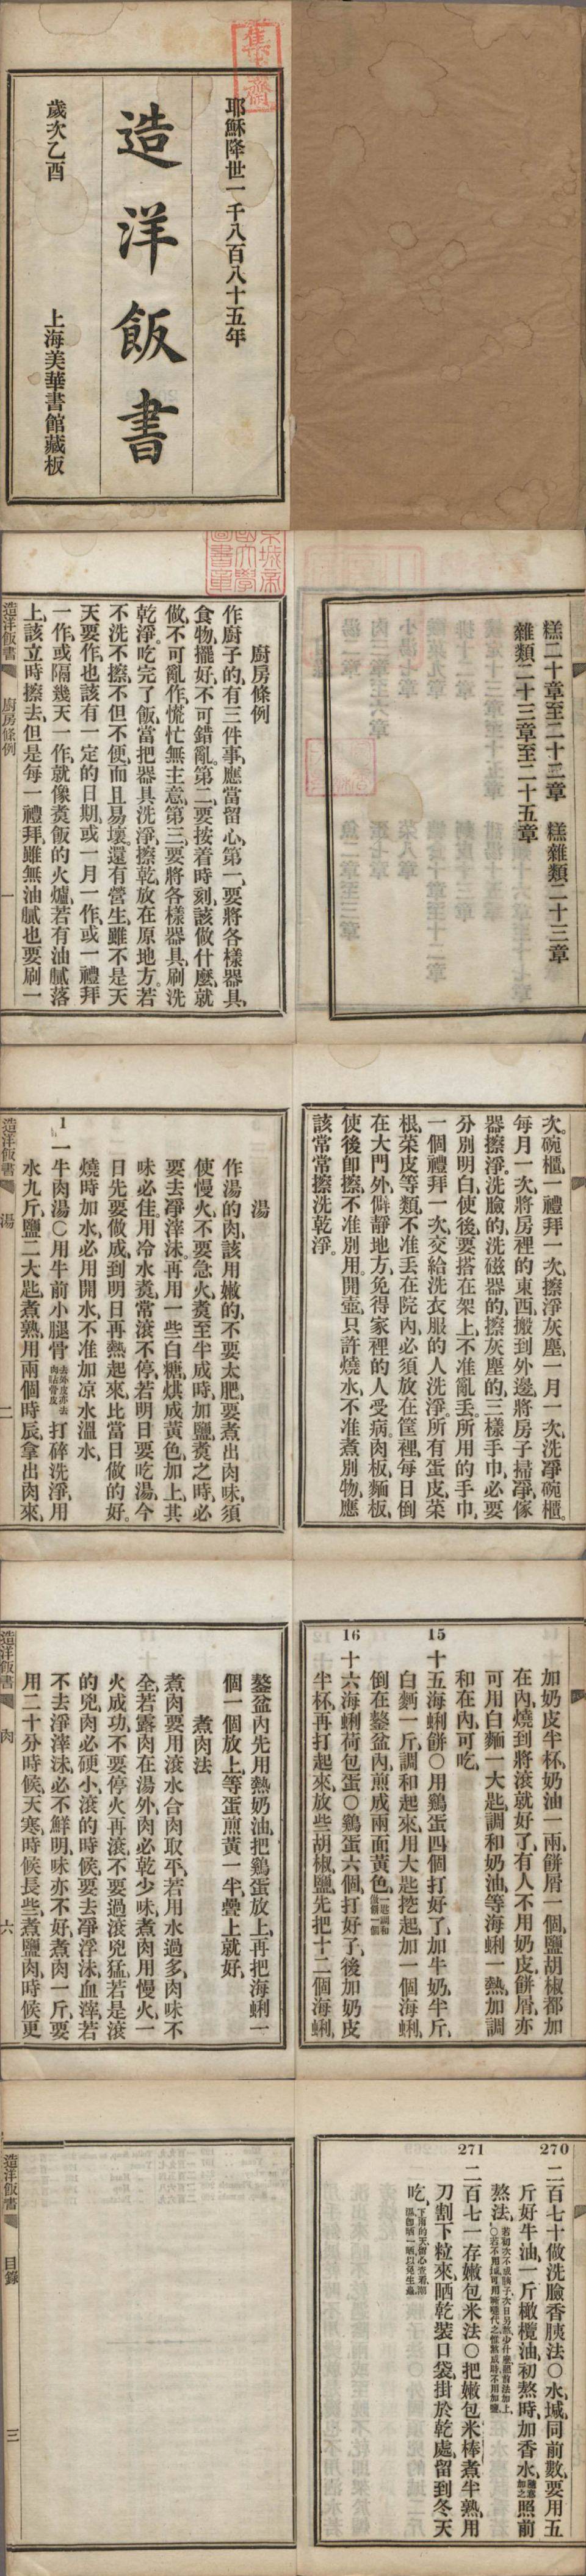 耶穌降世一千八百八十五年
造洋飯書
歲次乙酉
上海美華書館藏板
糕二十章至二十三章　糕雜類二十三章
雜類二十三章至二十五章
廚房條例
作廚子的、有三件事、應當留心、第一、要將各樣器具、
食物、擺好、不可錯亂。第二、要按着時刻、該做什麼、就
做、不可亂作、慌忙無主意、第三、要將各樣器具、刷洗
乾淨、吃完了飯、當把器具洗淨、擦乾、放在原地方。若
不洗不擦、不但不便、而且易壞。還有營生、雖不是天
天要作、也該有一定的日期、或一月一作、或一禮拜
一作、或隔幾天一作、就像煑飯的火爐、若有油膩落
上、該立時擦去、但是每一禮拜、雖無油膩、也要刷一
造洋飯書　廚房條例　一
次。碗櫃、一禮拜一次、擦淨灰塵、一月一次、洗凈碗櫃。
每月一次、將房裡的東西、搬到外邊、將房子掃凈、傢
器擦淨。洗臉的、洗磁器的、擦灰塵的、三樣手巾、必要
分別明白、使後、要搭在架上、不准亂丟。所用的手巾、
一個禮拜一次、交給洗衣服的人洗淨、所有蛋皮、菜
根、菜皮等類、不准丟在院內、必須放在筐裡、每日倒
在大門外僻靜地方、免得家裡的人受病、肉板、麵板、
使後即擦、不准別用。開壺只許燒水、不准煮別物、應
該常常擦洗乾淨。
湯
作湯的肉、該用嫩的、不要太肥、要煮出肉味、須
使慢火、不要急火、煑至半成時、加鹽、煑之時、必
要去凈滓沫。再用一些白糖、烘成黃色、加上、其
味必佳。用冷水煑、常滾不停、若明日要吃湯、今
日先要做成、到明日再熱起來、比當日做的好。
燒時加水、必用開水、不准加凉水溫水、
1 一牛肉湯〇用牛前小腿骨去外皮亦去肉貼骨皮打碎洗淨、用
水九斤、鹽二大匙、煮熟、用兩個時辰、拿出肉來、
造洋飯書　湯　二
加奶皮半杯、奶油一兩、餅屑一個、鹽胡椒都加
在內、燒到將滾就好了、有人不用奶皮餅屑、亦
可用白麵一大匙、調和奶油、等海蜊一熱、加調
和在內、可吃、
15 十五海蜊餅〇用鷄蛋四個、打好了、加牛奶半斤、
白麵一斤、調和起來、用大匙挖起、加一個海蜊、
倒在鏊盆內、煎成兩面黃色、一匙調和做個一個
16 十六海蜊荷包蛋〇鷄蛋六個、打好了、後加奶皮
半杯、再打起來、放些胡椒鹽、先把十二個海蜊、
鏊盆內先用熱奶油、把鷄蛋放上、再把海蜊一
個一個放上、等蛋煎黃一半、疊上就好、
煮肉法
煮肉要用滾水、合肉取平、若用水過多、肉味不
全、若露肉在湯外、肉必乾少味、煮肉用慢火、一
火成功、不要停火再滾、不要過滾兇猛、若是滾
的兇、肉必硬小、滾的時候、要去凈浮沫血滓、若
不去淨滓沫、必不鮮明、味亦不好、煮肉一斤、要
用二十分時候、天寒、時候長些、煮鹽肉、時候更
造洋飯書　肉　六
270 二百七十做洗臉香胰法〇水、堿、同前數、要用五
斤好牛油、一斤橄欖油、初熬時、加香水、隨意加之照前
熬法、
271 二百七一存嫩包米法〇把嫩包米棒煮半熟、用
刀割下粒來、晒乾、裝口袋、掛於乾處、留到冬天
吃、
造洋飯書　目錄　三